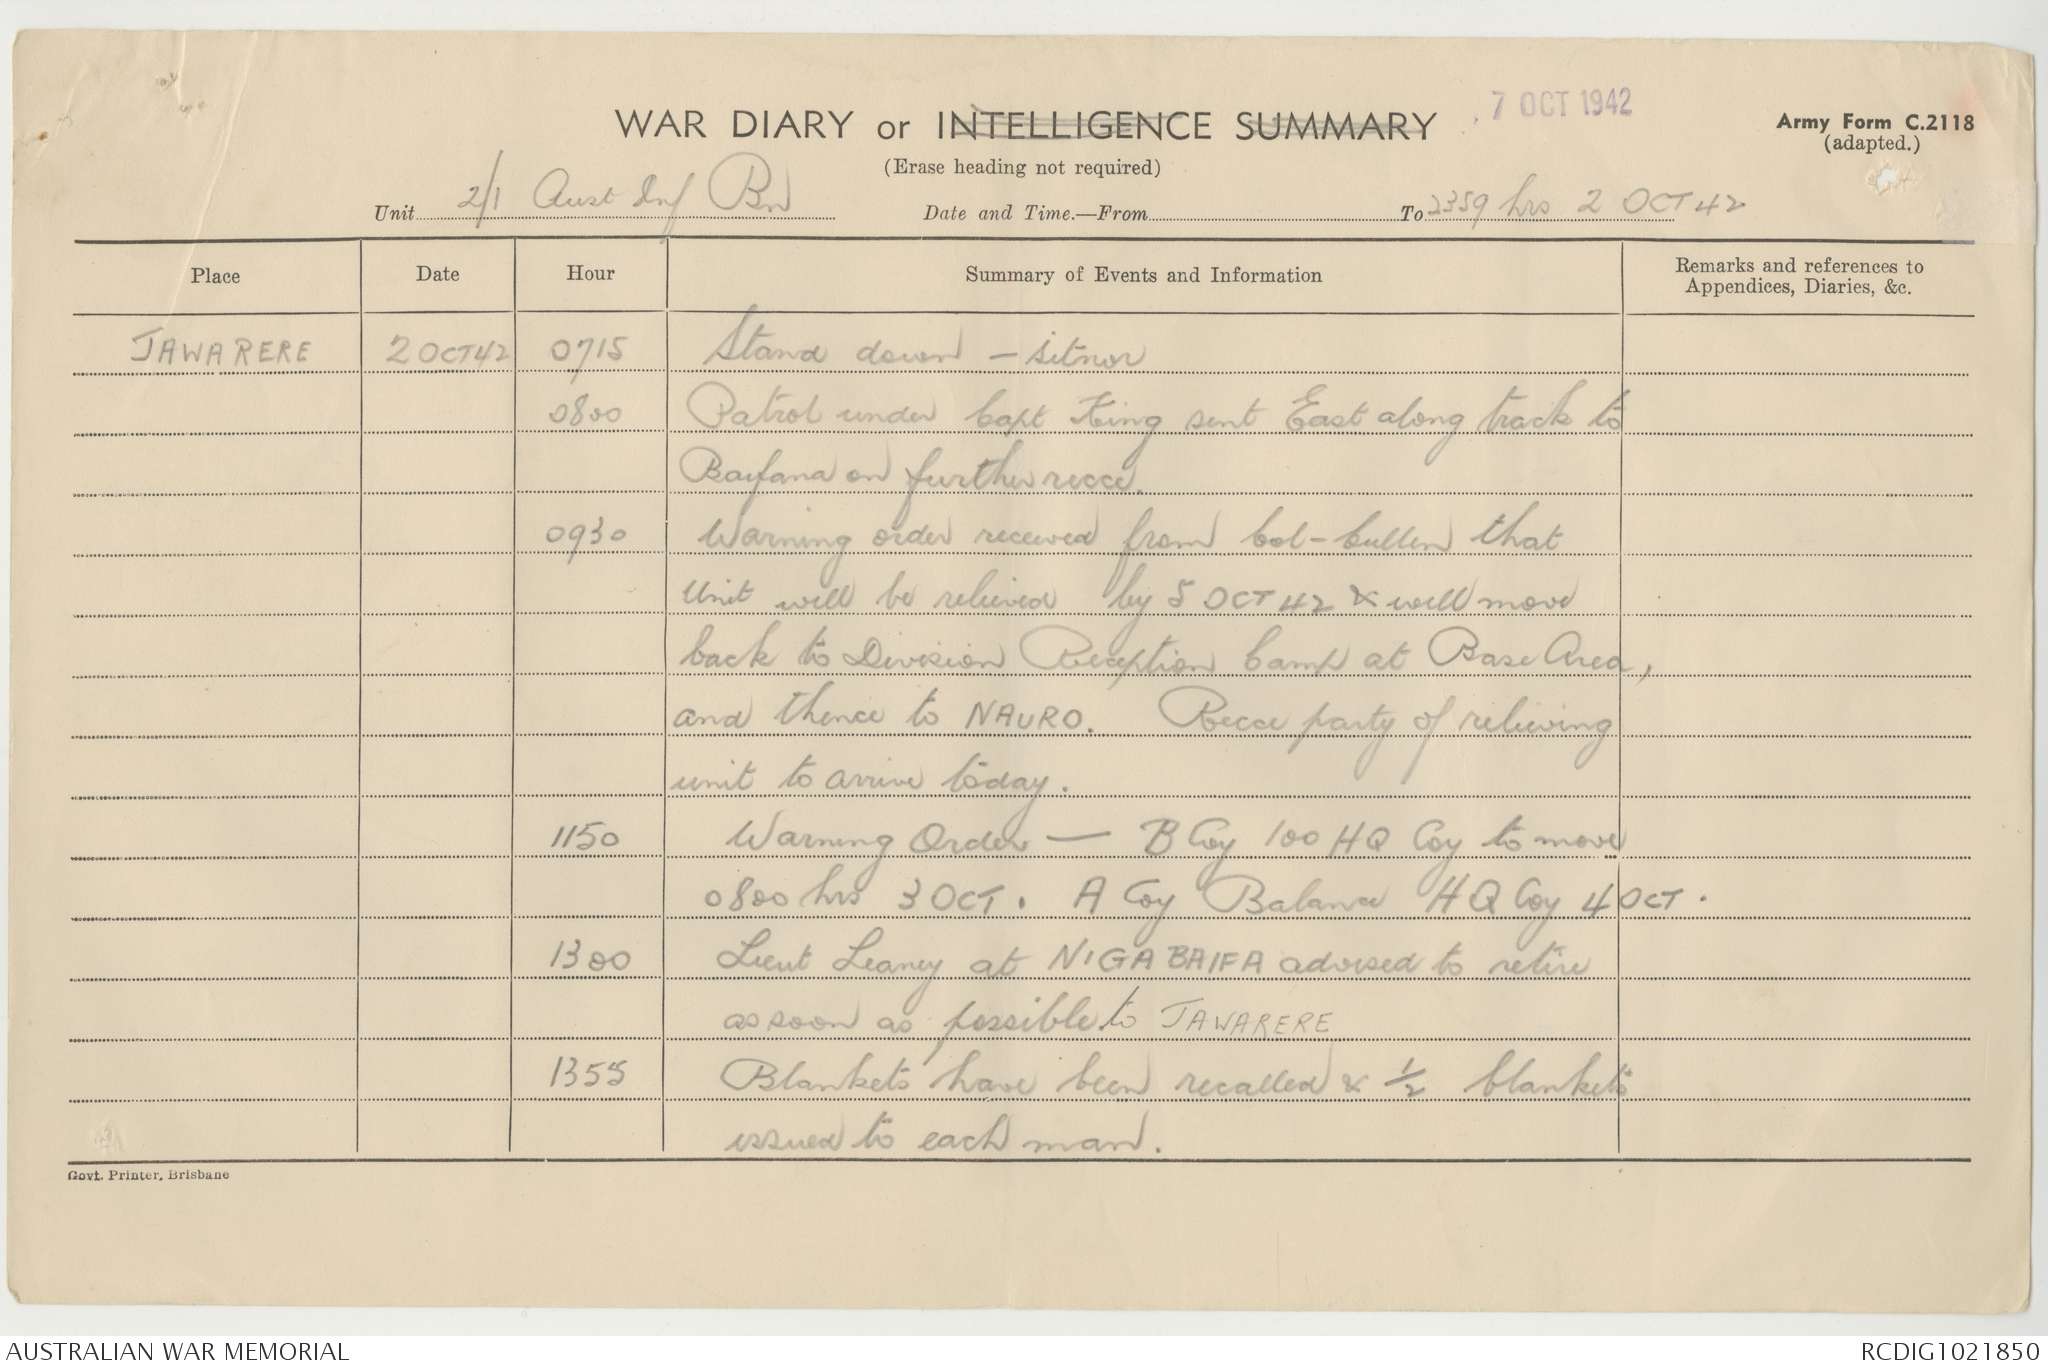 7 OCT 1942
WAR DIARY or INTELLIGENCE SUMMARY
Army Form C.2118
(adapted.)
(Erase heading not required)
Unit 2/1 Aust Inf Bn Date and Time.—From To 2359 hrs 2 OCT 42
Place Date Hour Summary of Events and Information Remarks and references to
Appendices, Diaries, &c.
JAWARERE 2 OCT 42 0715 Stand down - sitnor
0800 Patrol under Capt King sent East along track to
Baifana on further recce.
0930 Warning order received from Col-Cullen that
Unit will be relieved by 5 OCT 42 & will move
back to Division Reception Camp at Base Area,
and thence to NAURO. Recce party of relieving
unit to arrive today.
1150 Warning Order — B Coy 100 HQ Coy to move
0800 hrs 3 OCT. A Coy Balance HQ Coy 4 OCT.
1300 Lieut Leaney at NIGABAIFA advised to retire
as soon as possible to JAWARERE
1355 Blankets have been recalled & 1/2 blankets
issued to each man.
Govt. Printer, Brisbane
AUSTRALIAN WAR MEMORIAL RCDIG1021850